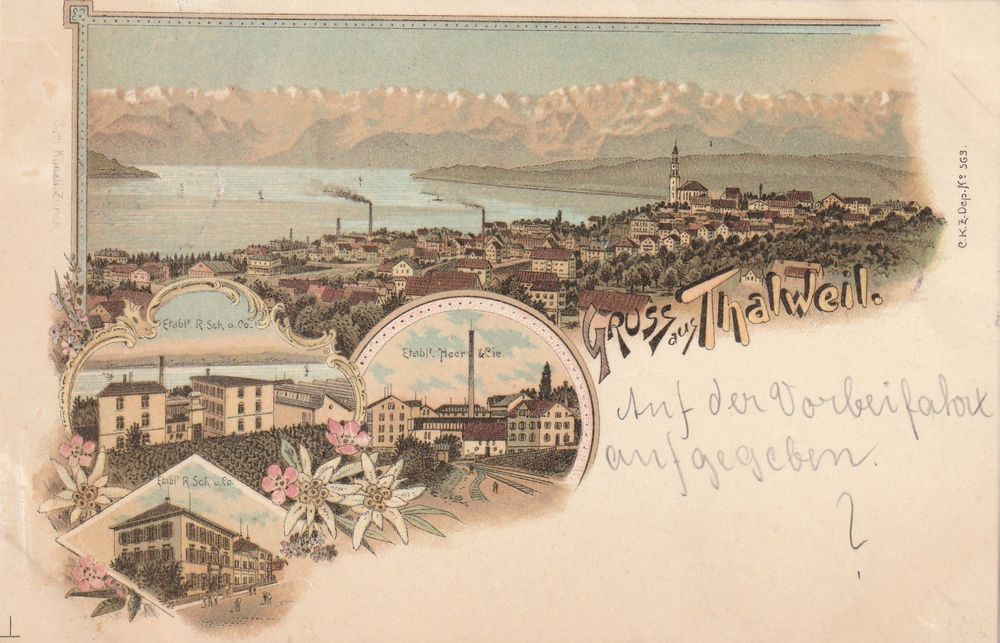 Gruss aus Thalweil.
Etablt. R. Sch. u. Co.
Etablt. Heer & Cie.
Etablt. R. Sch. u. Co.
C.K.Z. Dep. No 563.
Auf der Vorbeifahrt
aufgegeben.
?